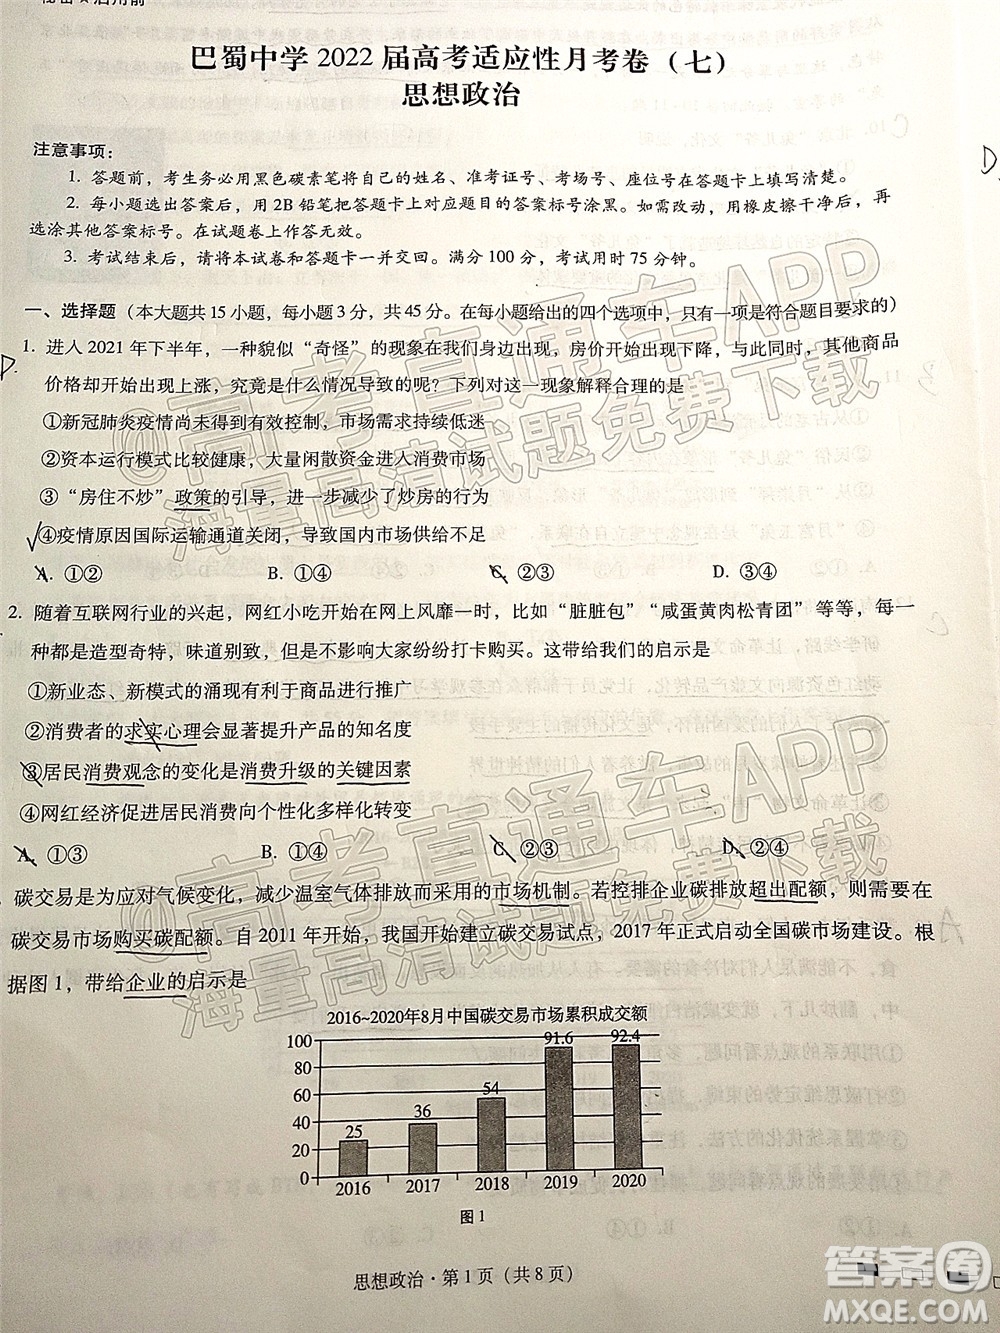 巴蜀中学 2022 届高考适应性月考卷（七）
思想政治
注意事项：
1. 答题前，考生务必用黑色碳素笔将自己的姓名、准考证号、考场号、座位号在答题卡上填写清楚。
2. 每小题选出答案后，用 2B 铅笔把答题卡上对应题目的答案标号涂黑。如需改动，用橡皮擦干净后，再
选涂其他答案标号。在试题卷上作答无效。
3. 考试结束后，请将本试卷和答题卡一并交回。满分 100 分，考试用时 75 分钟。
一、选择题（本大题共 15 小题，每小题 3 分，共 45 分。在每小题给出的四个选项中，只有一项是符合题目要求的）
D.
1. 进入 2021 年下半年，一种貌似“奇怪”的现象在我们身边出现，房价开始出现下降，与此同时，其他商品
价格却开始出现上涨，究竟是什么情况导致的呢？下列对这一现象解释合理的是
①新冠肺炎疫情尚未得到有效控制，市场需求持续低迷
②资本运行模式比较健康，大量闲散资金进入消费市场
③“房住不炒”政策的引导，进一步减少了炒房的行为
④疫情原因国际运输通道关闭，导致国内市场供给不足
A. ①② B. ①④ C. ②③ D. ③④
2. 随着互联网行业的兴起，网红小吃开始在网上风靡一时，比如“脏脏包”“咸蛋黄肉松青团”等等，每一
种都是造型奇特，味道别致，但是不影响大家纷纷打卡购买。这带给我们的启示是
①新业态、新模式的涌现有利于商品进行推广
②消费者的求实心理会显著提升产品的知名度
③居民消费观念的变化是消费升级的关键因素
④网红经济促进居民消费向个性化多样化转变
A. ①③ B. ①④ C. ②③ D. ②④
碳交易是为应对气候变化，减少温室气体排放而采用的市场机制。若控排企业碳排放超出配额，可在
碳交易市场购买碳配额。自 2011 年开始，我国开始建立碳交易试点，2017 年正式启动全国碳市场建设。根
据图 1，带给企业的启示是
2016~2020年8月中国碳交易市场累积成交额
100
80
60
40
20
0
25
36
54
91.6
92.4
2016 2017 2018 2019 2020
图 1
思想政治·第 1 页（共 8 页）
@高考直通车APP
海量高清试题免费下载
@高考直通车APP
海量高清试题免费下载
答案圈
MXQE.COM